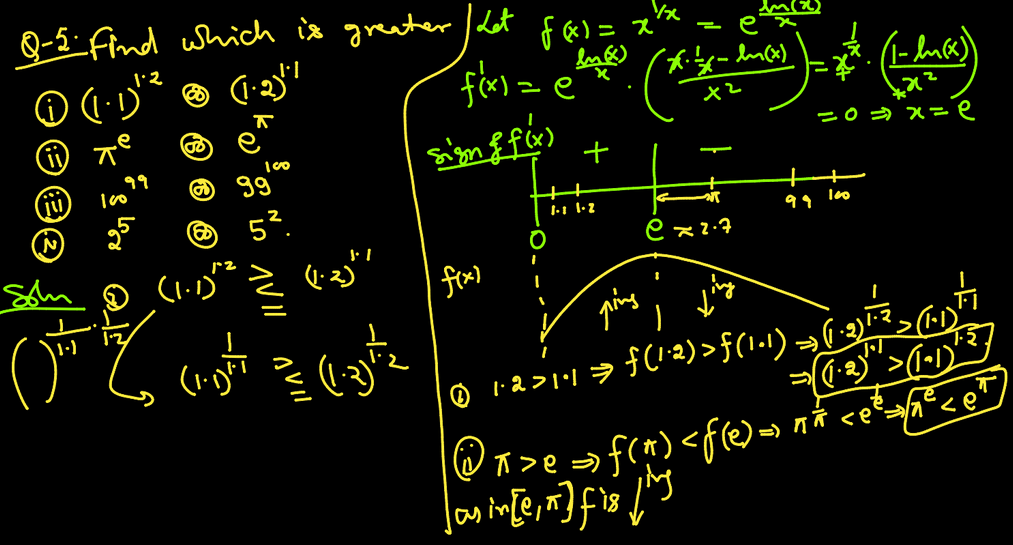 Q-2: Find which is greater
(i) (1.1)^{1.2} or (1.2)^{1.1}
(ii) π^e or e^π
(iii) 100^{99} or 99^{100}
(iv) 2^5 or 5^2.
Soln (i) (1.1)^{1.2} ⋛ (1.2)^{1.1}
( )^{1/1.1 · 1/1.2}
(1.1)^{1/1.1} ⋛ (1.2)^{1/1.2}
Let f(x) = x^{1/x} = e^{ln(x)/x}
f'(x) = e^{ln(x)/x} · ((x·1/x - ln(x))/x²) = x^{1/x} · ((1-ln(x))/x²)
= 0 ⇒ x = e
sign of f'(x) + −
1.1 1.2 π 99 100
0 e ≈ 2.7
f(x)
↑ing ↓ing
(i) 1.2 > 1.1 ⇒ f(1.2) > f(1.1) ⇒ (1.2)^{1/1.2} > (1.1)^{1/1.1}
⇒ (1.2)^{1.1} > (1.1)^{1.2}.
(ii) π > e ⇒ f(π) < f(e) ⇒ π^{1/π} < e^{1/e} ⇒ π^e < e^π
as in [e, π] f is ↓ing